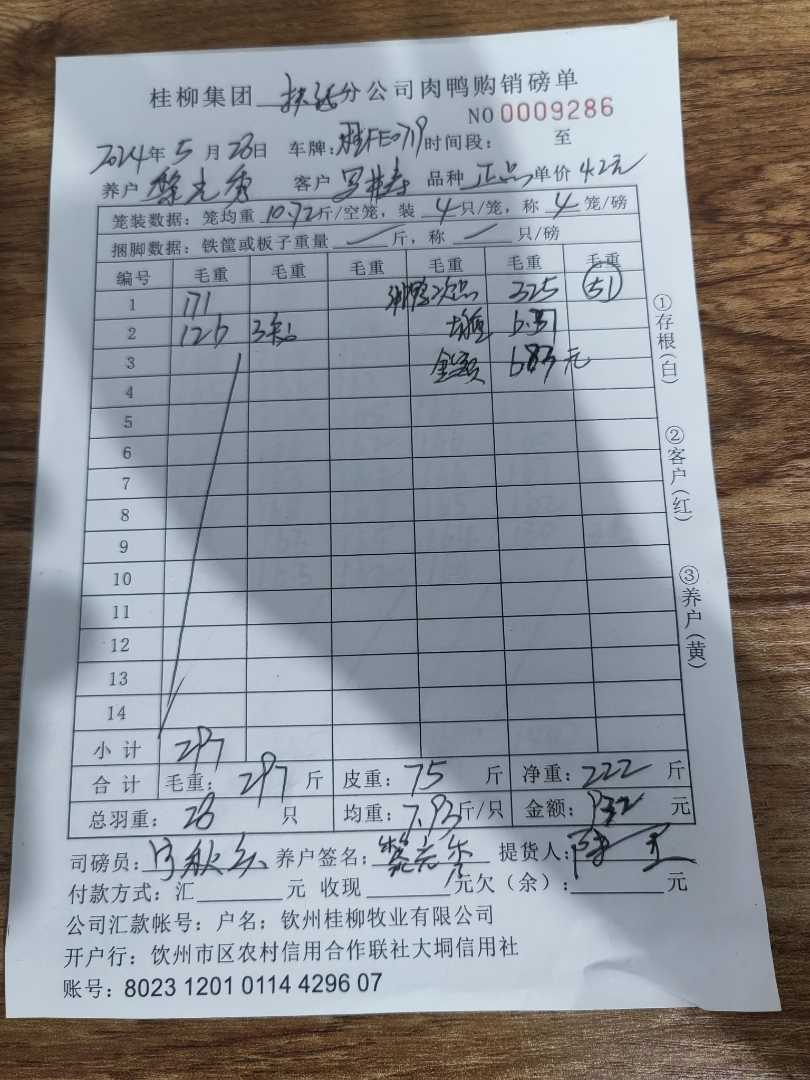 桂柳集团 分公司肉鸭购销磅单
NO 0009286
2024年5月28日 车牌: FE0719 时间段: 至
养户 黎光秀 客户 品种 正品 单价 4.2元
笼装数据: 笼均重 10.72 斤/空笼, 装 4 只/笼, 称 4 笼/磅
捆脚数据: 铁筐或板子重量 斤, 称 只/磅
编号 毛重 毛重 毛重 毛重 毛重 毛重
1 171 次品 325 51
2 126 3 6.37
3 金额 683元
4
5
6
7
8
9
10
11
12
13
14
小计 297
合计 毛重: 297 斤 皮重: 75 斤 净重: 222 斤
总羽重: 28 只 均重: 7.93 斤/只 金额: 932 元
司磅员: 养户签名: 黎光秀 提货人:
付款方式: 汇 元 收现 元欠(余): 元
公司汇款帐号: 户名: 钦州桂柳牧业有限公司
开户行: 钦州市区农村信用合作联社大垌信用社
账号: 8023 1201 0114 4296 07
①存根(白)
②客户(红)
③养户(黄)